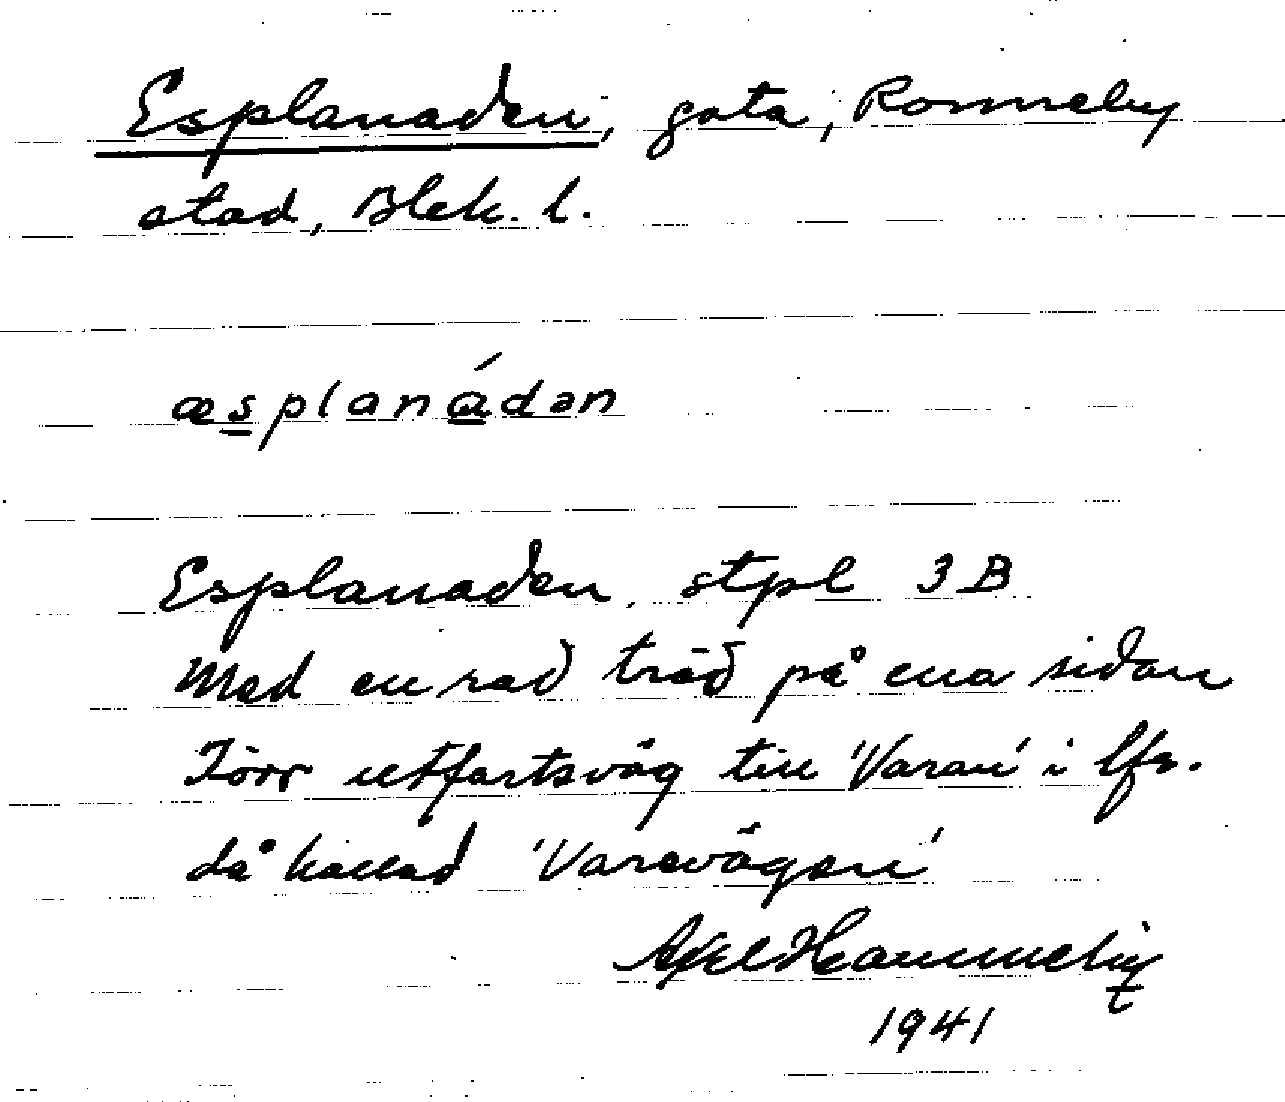 Esplanaden, gata, Ronneby
stad, Blek. l.
æsplanádən
Esplanaden, stpl 3B
Med en rad träd på ena sidan
Förr utfartsväg till 'Varan' i lfs.
då kallad 'Varavägen'
Axel Hammelin
1941